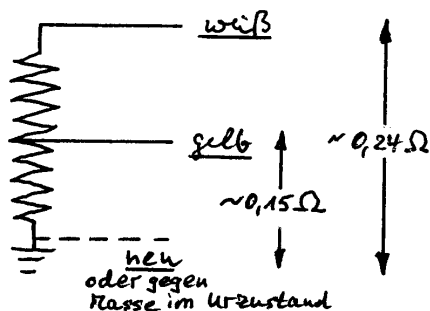 weiß
gelb
~0,24Ω
~0,15Ω
neu
oder gegen
Masse im Urzustand